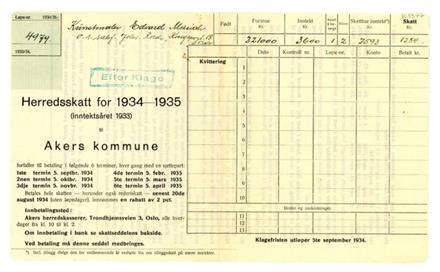 Løpe-nr.
1934/35.
4979.
1933/34.
Kunstmaler Edvard Munch
Født
Formue
Inntekt
Skattbar inntekt*)
Skatt
221000
3600
1
2
2593
1280
Dato
Kontroll nr.
Løpe-nr.
Konto
Betalt kr.
Kvittering
1
2
3
4
5
6
7
8
9
10
Efter Klage
Herredsskatt for 1934—1935
(inntektsåret 1933)
til
Akers kommune
forfaller til betaling i følgende 6 terminer, hver gang med en sjettepart:
1ste termin 5. septbr. 1934
4de termin 5. febr. 1935
2nen termin 5. oktbr. 1934
5te termin 5. mars 1935
3dje termin 5. novbr. 1934
6te termin 5. april 1935
Betales hele skatten — herunder også rederskatt — senest 20de
august 1934 (uten løpedager), innrømmes en rabatt av 2 pct.
Innbetalingssted:
Akers herredskasserer, Trondhjemsveien 3, Oslo, alle hver-
dager fra kl. 10 til kl. 2.
Om innbetaling i bank se skattseddelens bakside.
Ved betaling må denne seddel medbringes.
Klagefristen utløper 5te september 1934.